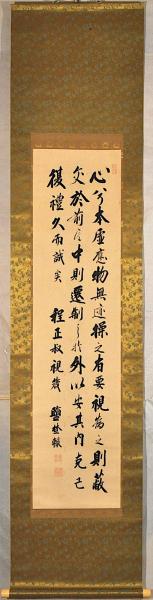 心兮本虚應物無迹操之有要視為之則蔽
交於前其中則遷制之於外以安其内克己
復禮久而誠矣　程正叔視箴